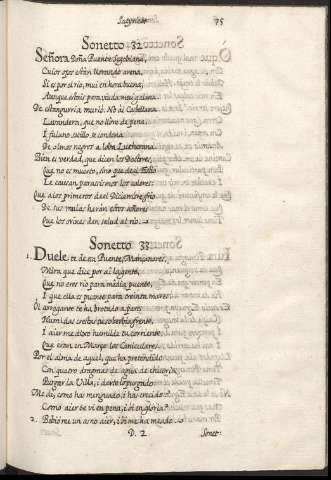 Satyricos. 75
Sonetto 32
Señora Doña Puente Segobiana,
Cuios ojos están llorando arena,
Si es por el rio, mui en hora buena,
Aunque estáis para viuda mui galana.
De estangurria murió. No ai Castellana
Lavandera, que no llore de pena,
I fulano sotillo se condena
De olmos negros a loba Luterana.
Bien es verdad, que dicen los Doctores,
Que no es muerto, sino que de el Estio
Le causan parasismos los calores;
Que a los primeros de el Diciembre frio
De sus mulas harán estos señores
Que los orines den salud al rio.
Sonetto 33
1. Duele te de essa Puente, Mançanares,
Mira que dice por ai la gente,
Que no eres rio para media puente,
I que ella es puente para treinta mares.
Oi arrogante te ha brotado a pares
Humidas crestas tu soberbia frente,
I aier me dixo humilde tu corriente,
Que eran en Março los Caniculares.
Por el alma de aquel, que ha pretendido
Con quatro dragmas de agua de chicoria
Purgar la Villa, i darte lo purgado,
Me dí, como has menguado, i has crecido
Como aier te vi en pena, i oi en gloria?
2. Bebió me un asno aier, i oi me ha meado
D. 2 Sonet-